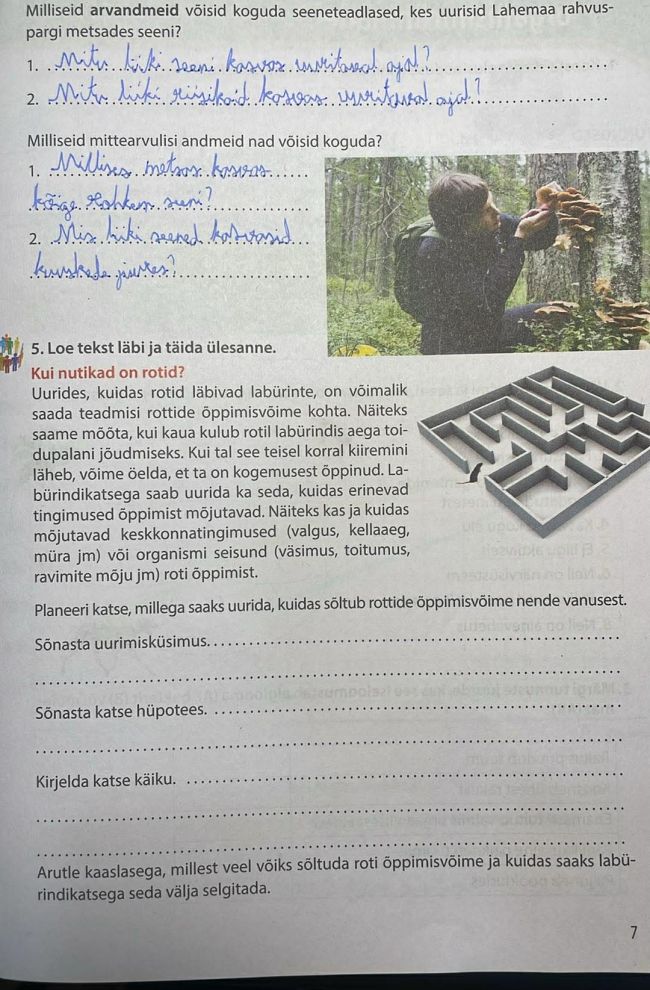 Milliseid arvandmeid võisid koguda seeneteadlased, kes uurisid Lahemaa rahvus-
pargi metsades seeni?
1. Mitu liiki seeni kasvas uuritaval ajal?
2. Mitu liiki riisikaid kasvas uuritaval ajal?
Milliseid mittearvulisi andmeid nad võisid koguda?
1. Millises metsas kasvas
kõige rohkem seeni?
2. Mis liiki seened kasvasid
kuuskede juures?
5. Loe tekst läbi ja täida ülesanne.
Kui nutikad on rotid?
Uurides, kuidas rotid läbivad labürinte, on võimalik
saada teadmisi rottide õppimisvõime kohta. Näiteks
saame mõõta, kui kaua kulub rotil labürindis aega toi-
dupalani jõudmiseks. Kui tal see teisel korral kiiremini
läheb, võime öelda, et ta on kogemusest õppinud. La-
bürindikatsega saab uurida ka seda, kuidas erinevad
tingimused õppimist mõjutavad. Näiteks kas ja kuidas
mõjutavad keskkonnatingimused (valgus, kellaaeg,
müra jm) või organismi seisund (väsimus, toitumus,
ravimite mõju jm) roti õppimist.
Planeeri katse, millega saaks uurida, kuidas sõltub rottide õppimisvõime nende vanusest.
Sõnasta uurimisküsimus.
Sõnasta katse hüpotees.
Kirjelda katse käiku.
Arutle kaaslasega, millest veel võiks sõltuda roti õppimisvõime ja kuidas saaks labü-
rindikatsega seda välja selgitada.
7